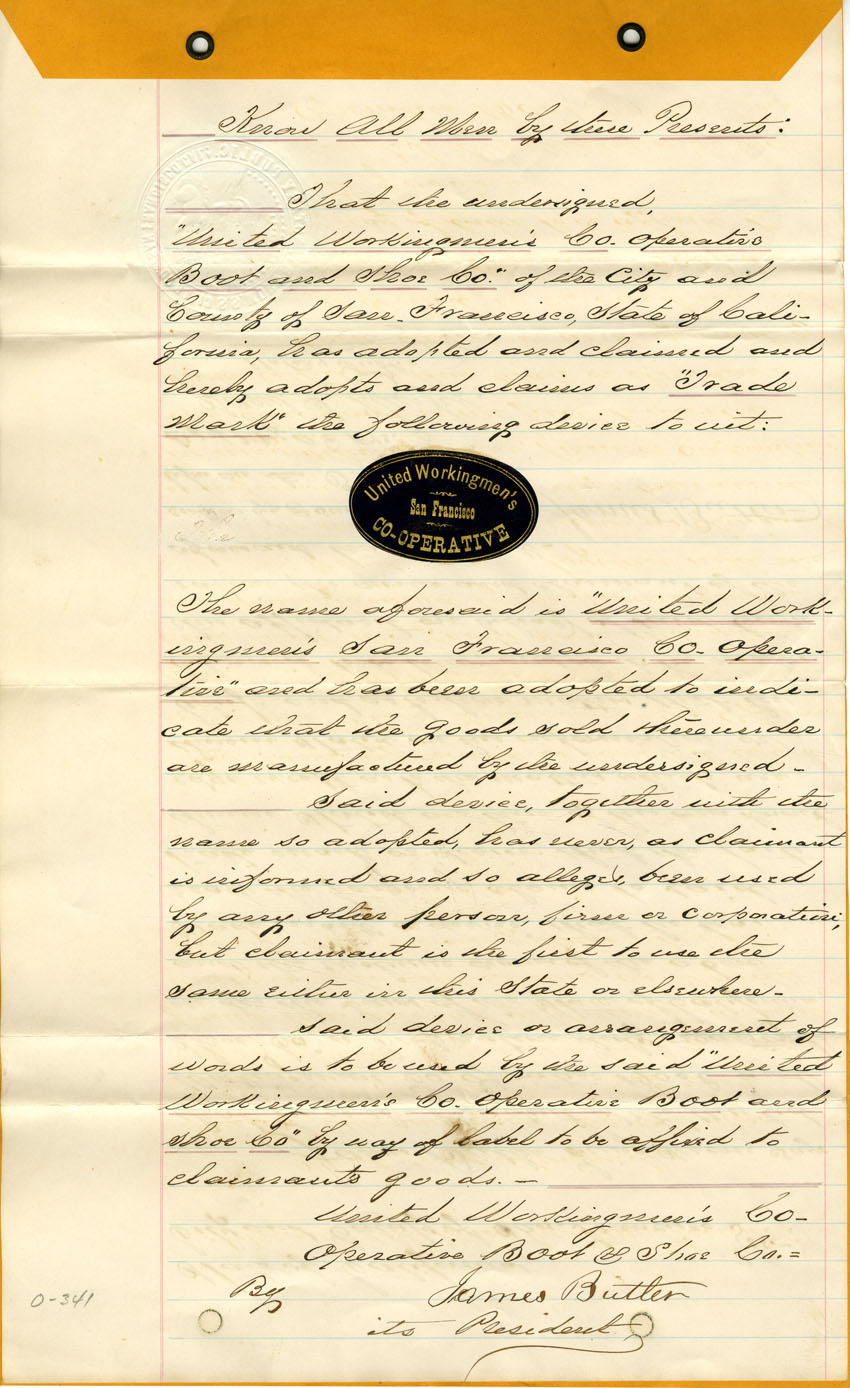 Know All Men by these Presents:
That the undersigned,
"United Workingmen's Co. operative
Boot and Shoe Co." of the City and
County of San Francisco, State of Cali-
fornia, has adopted and claimed and
hereby adopts and claims as "Trade
Mark" the following device to wit:
United Workingmen's
San Francisco
CO-OPERATIVE
The name aforesaid is "United Work-
ingmen's San Francisco Co-Opera-
tive" and has been adopted to indi-
cate that the goods sold thereunder
are manufactured by the undersigned-
Said device, together with the
name so adopted, has never, as claimant
is informed and so alleges, been used
by any other person, firm or corporation,
but claimant is the first to use the
same either in this State or elsewhere-
Said device or arrangement of
words is to be used by the said "United
Workingmen's Co. Operative Boot and
Shoe Co" by way of label to be affixed to
claimants goods. -
United Workingmen's Co-
Operative Boot & Shoe Co.=
By James Butler
its President
0-341